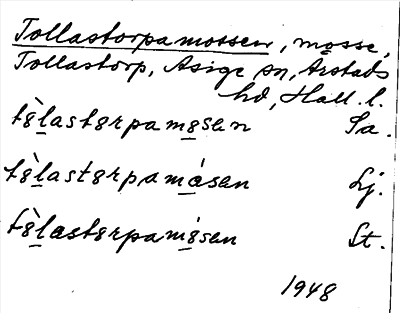 Tollastorpamossen, mosse,
Tollastorp, Asige sn, Årstads
hd, Hall. l.
tȣ̀lastȣrpamȣsən Sa.
tȣ̀lastȣrpamȧsən Lj.
tȣ̀lastȣrpamȣ́sən St.
1948